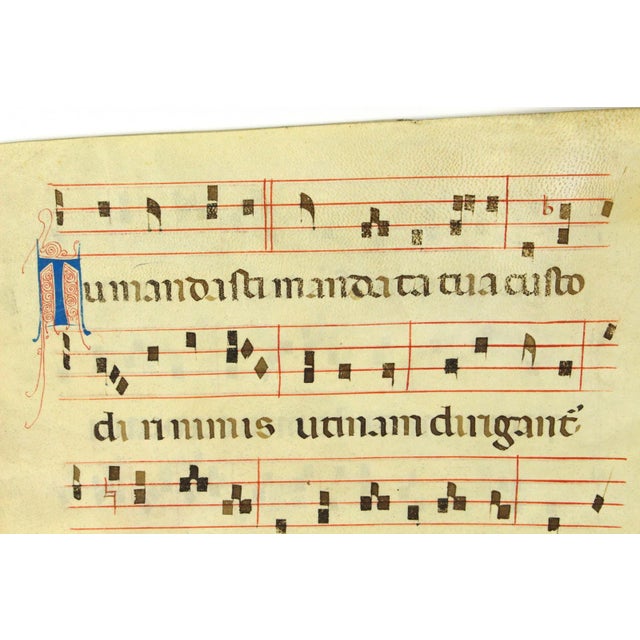 Tu mandasti mandata tua custo
diri nimis utinam dirigant᷑